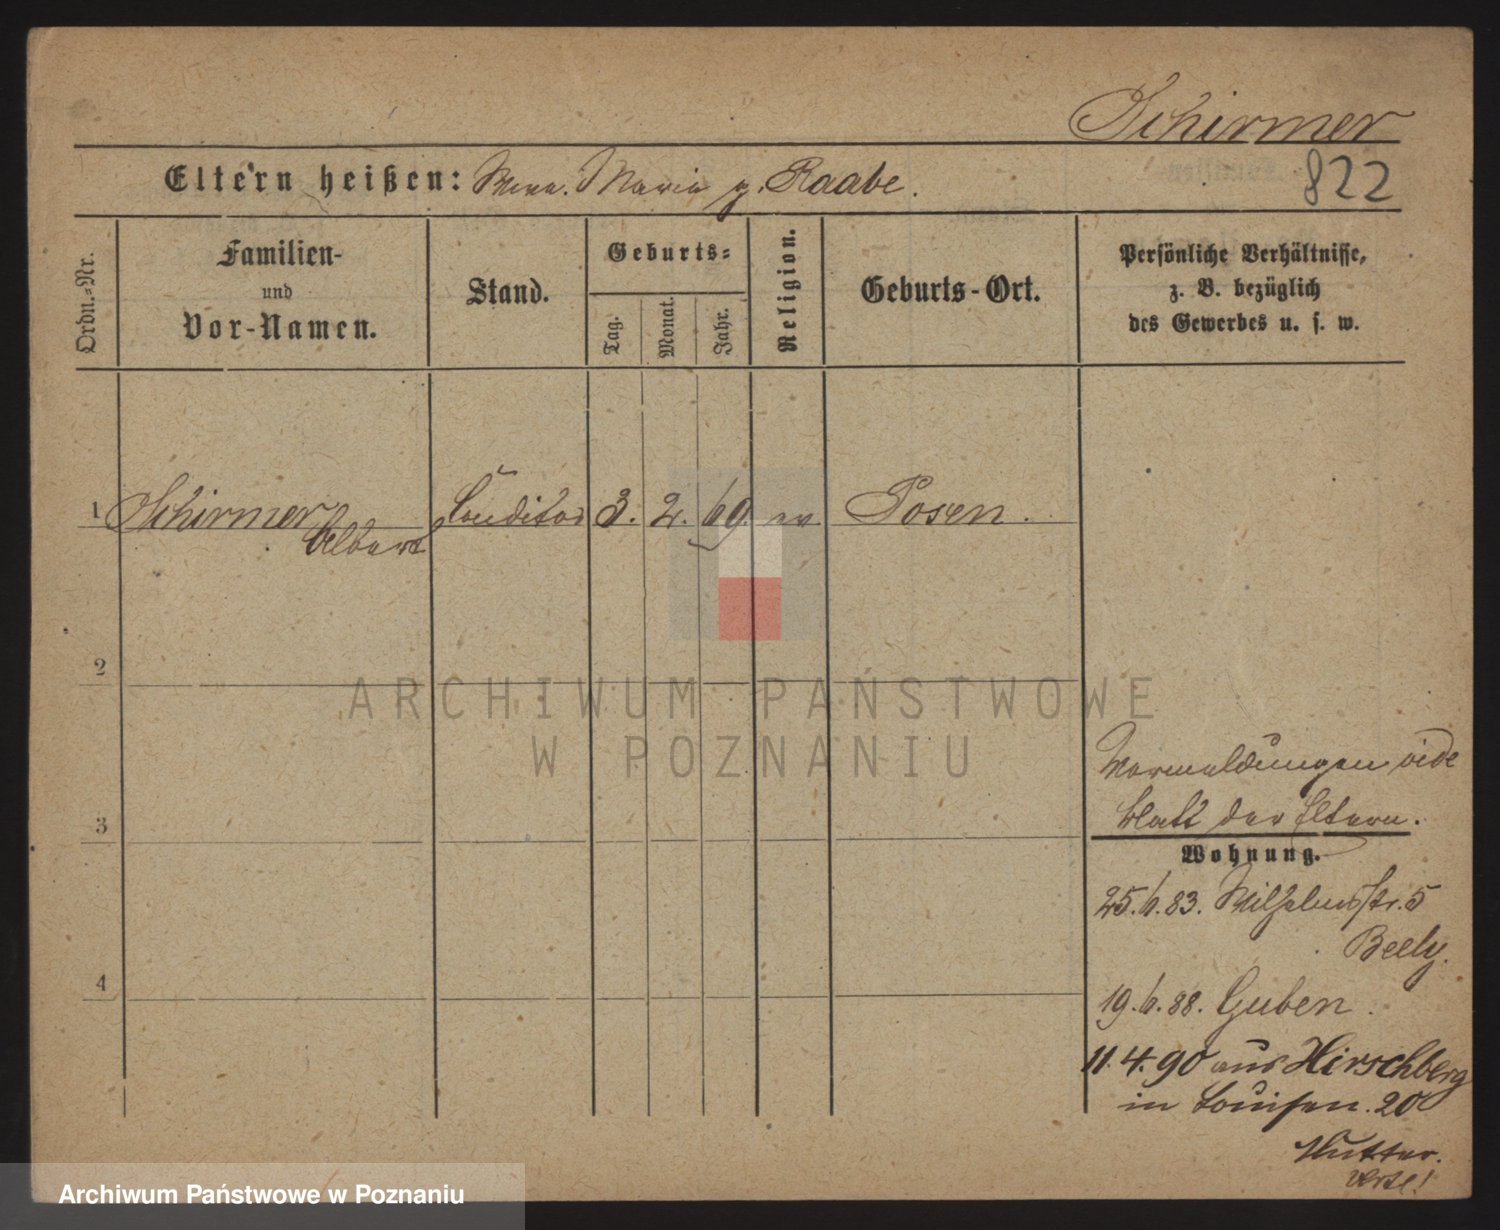 Schirmer
822
Eltern heißen: Maria g. Raabe.
Ordn.-Nr.
Familien-
und
Vor-Namen.
Stand.
Geburts-
Tag.
Monat.
Jahr.
Religion.
Geburts-Ort.
Persönliche Verhältnisse,
z. B. bezüglich
des Gewerbes u. s. w.
1 Schirmer Conditor 3. 2. 69. ev. Posen.
Albert
2
ARCHIWUM PAŃSTWOWE
W POZNANIU
3
4
Vormeldungen vide
Blatt der Eltern.
Wohnung.
25.6.83. Wilhelmstr. 5
Beely.
19.6.88. Guben.
11.4.90 aus Hirschberg
in Louisen. 20
Mutter.
Archiwum Państwowe w Poznaniu